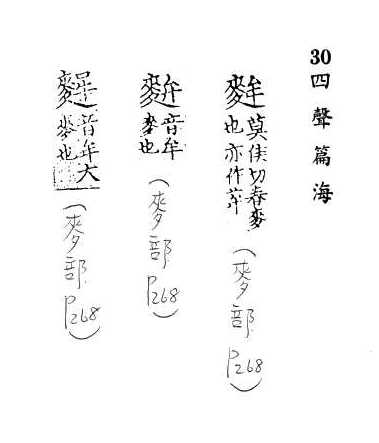 30四聲篇海
麰莫侯切春麥
也亦作
(麥部P268)
音牟
麥也
(麥部P268)
音牟大
麥也
(麥部P268)